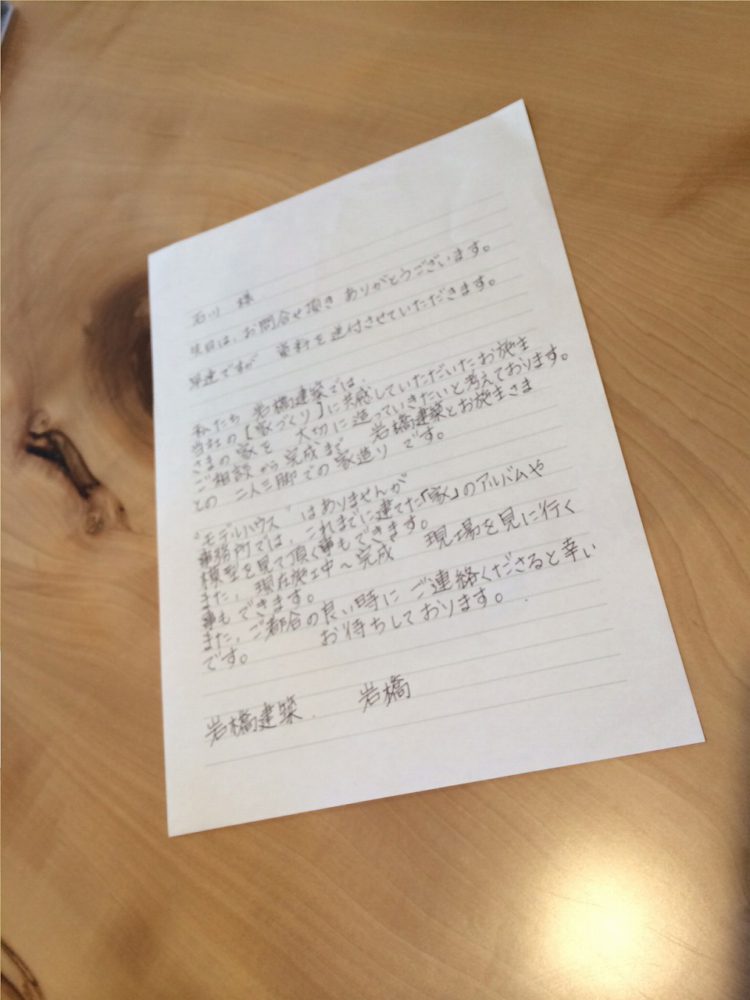 石川 様
先日は、お問合せ頂き ありがとうございます。
早速ですが 資料を送付させていただきます。
私たち 岩橋建築では、
当社の【家づくり】に共感していただいたお施主
さまの家を 大切に造っていきたいと考えております。
ご相談から完成まで 岩橋建築とお施主さま
との 二人三脚での家造り です。
"モデルハウス" はありませんが
事務所では、これまでに建てた「家」のアルバムや
模型を見て頂く事もできます。
また、現在施工中〜完成 現場を見に行く
事もできます。
また、ご都合の良い時に ご連絡くださると幸い
です。 お待ちしております。
岩橋建築. 岩橋